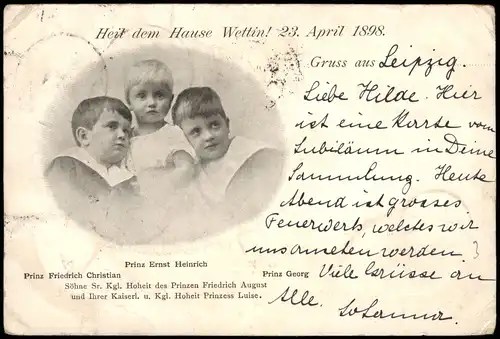 Heil dem Hause Wettin! 23. April 1898.
Gruss aus Leipzig.
Liebe Hilde. Hier
ist eine Karte vom
Jubiläum in Deine
Sammlung. Heute
Abend ist grosses
Feuerwerk, welches wir
uns ansehen werden.
Viele Grüsse an
Alle. Johanna.
Prinz Ernst Heinrich
Prinz Friedrich Christian
Prinz Georg
Söhne Sr. Kgl. Hoheit des Prinzen Friedrich August
und Ihrer Kaiserl. u. Kgl. Hoheit Prinzess Luise.